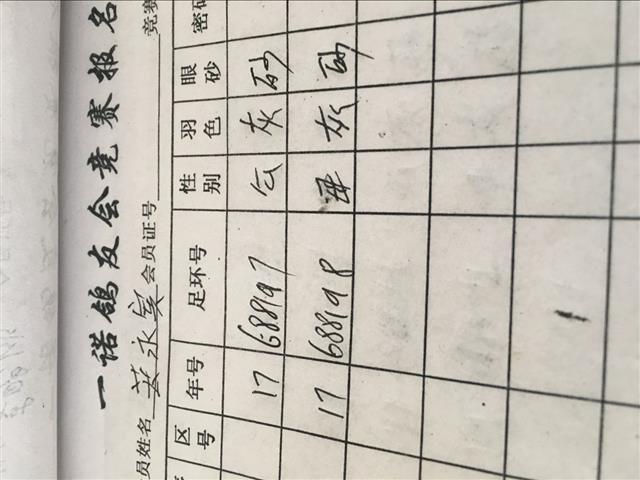 一诺鸽友会竞赛报名
员姓名 永 会员证号 竞赛
区号 年号 足环号 性别 羽色 眼砂 密码
17 688197 灰 砂
17 688198 灰 砂